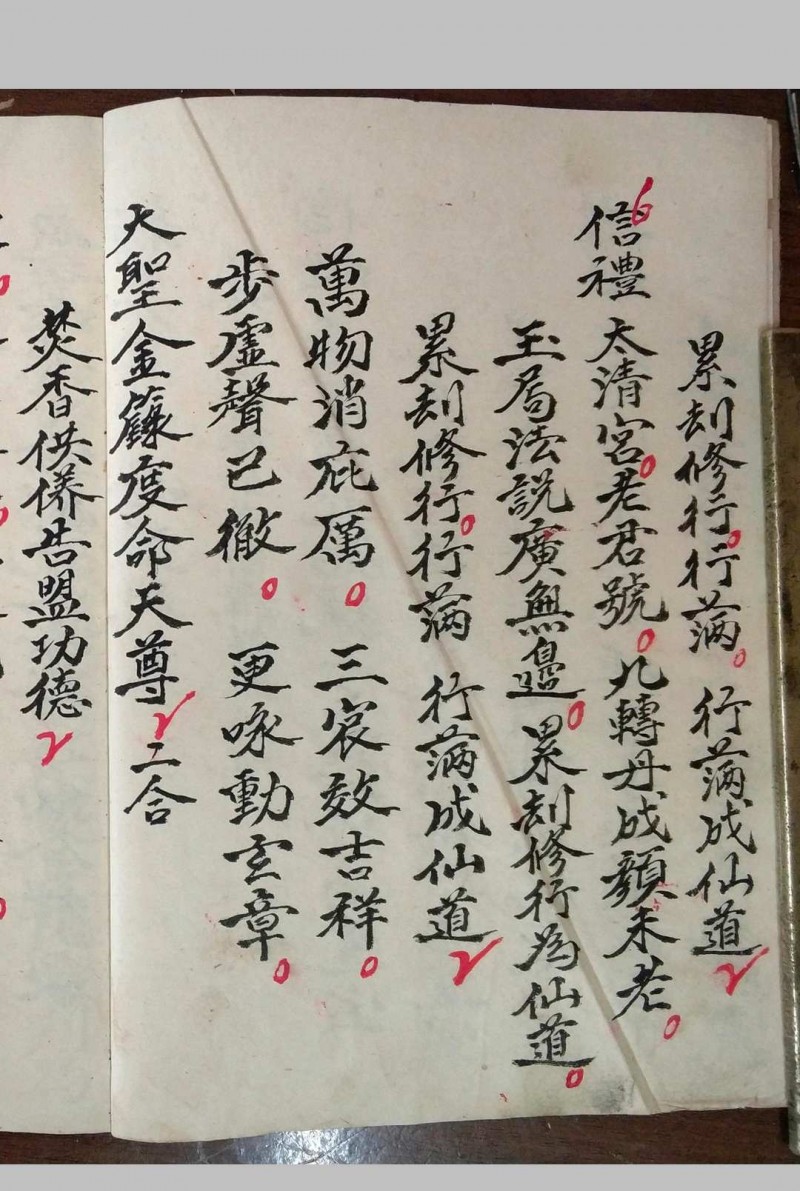 累刧修行行満 行満成仙道
信禮 太清宮老君號九轉丹成顏未老
玉局法説廣無邊累刧修行為仙道
累刧修行行満 行満成仙道
萬物消疵厲 三宸效吉祥
步虛聲已徹 更咏動玄章
大聖金籙度命天尊 二合
焚香供養告盟功德